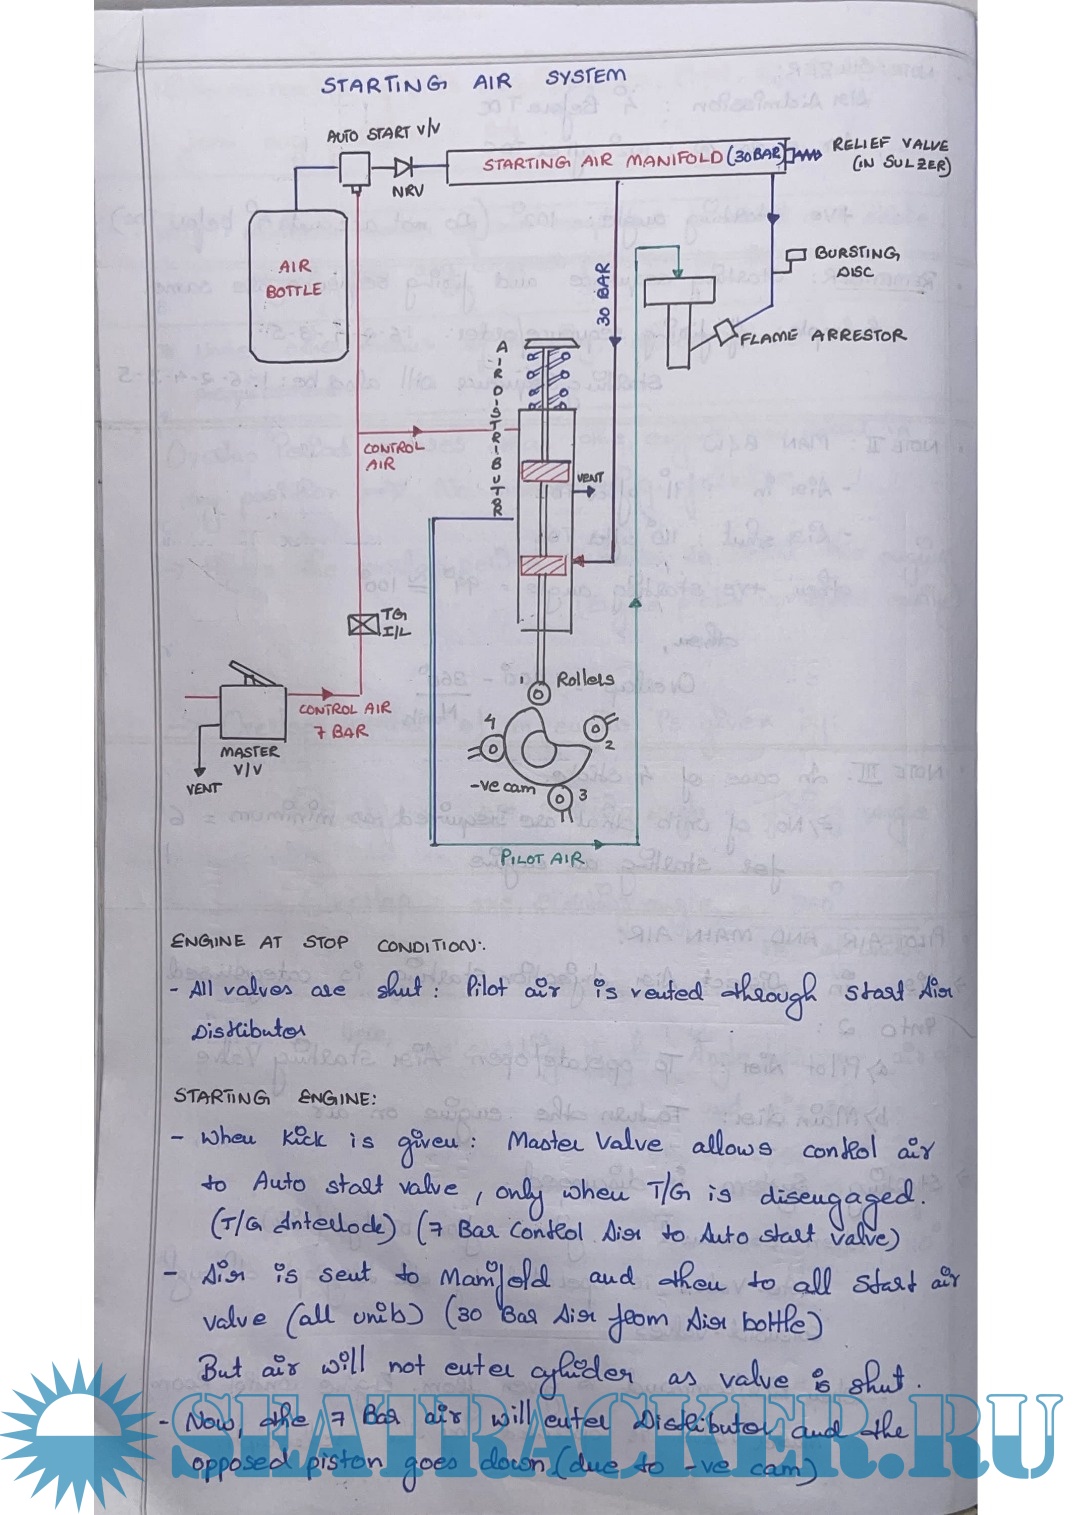 STARTING AIR SYSTEM
AUTO START V/V
NRV
STARTING AIR MANIFOLD (30 BAR)
RELIEF VALVE
(IN SULZER)
AIR
BOTTLE
30 BAR
BURSTING
DISC
FLAME ARRESTOR
AIR DISTRIBUTOR
CONTROL
AIR
VENT
TG
I/L
CONTROL AIR
7 BAR
MASTER
V/V
VENT
1
Rollers
4
2
-ve cam
3
PILOT AIR
ENGINE AT STOP CONDITION:.
- All valves are shut : Pilot air is vented through Start Air
Distributor
STARTING ENGINE:
- When Kick is given : Master Valve allows control air
to Auto start valve, only when T/G is disengaged.
(T/G Interlock) (7 Bar Control Air to Auto start valve)
- Air is sent to Manifold and then to all Start air
valve (all units) (30 Bar Air from Air bottle)
But air will not enter cylinder as valve is shut.
- Now, the 7 Bar air will enter Distributor and the
opposed piston goes down (due to -ve cam)
SEATRACKER.RU